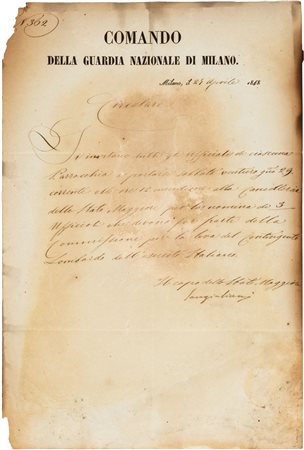 1362
COMANDO
DELLA GUARDIA NAZIONALE DI MILANO.
Milano, 27 Aprile 1848
Circolare
Si invitano tutti gli Ufficiali di ciascuna
Parrocchia a portarsi sabbato venturo 29
corrente alle ore 12 meridiane alla Cancelleria
dello Stato Maggiore per la nomina di 3
Ufficiali che devono far parte della
Commissione per la leva del Contingente
Lombardo dell'esercito Italiano.
Il capo dello Stato Maggiore